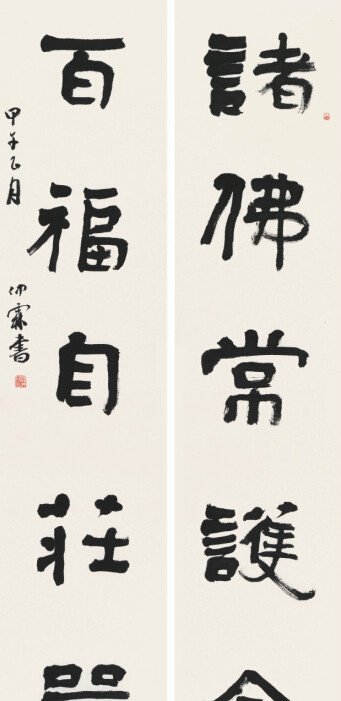 諸佛常護
百福自莊
甲午正月 仲霖書